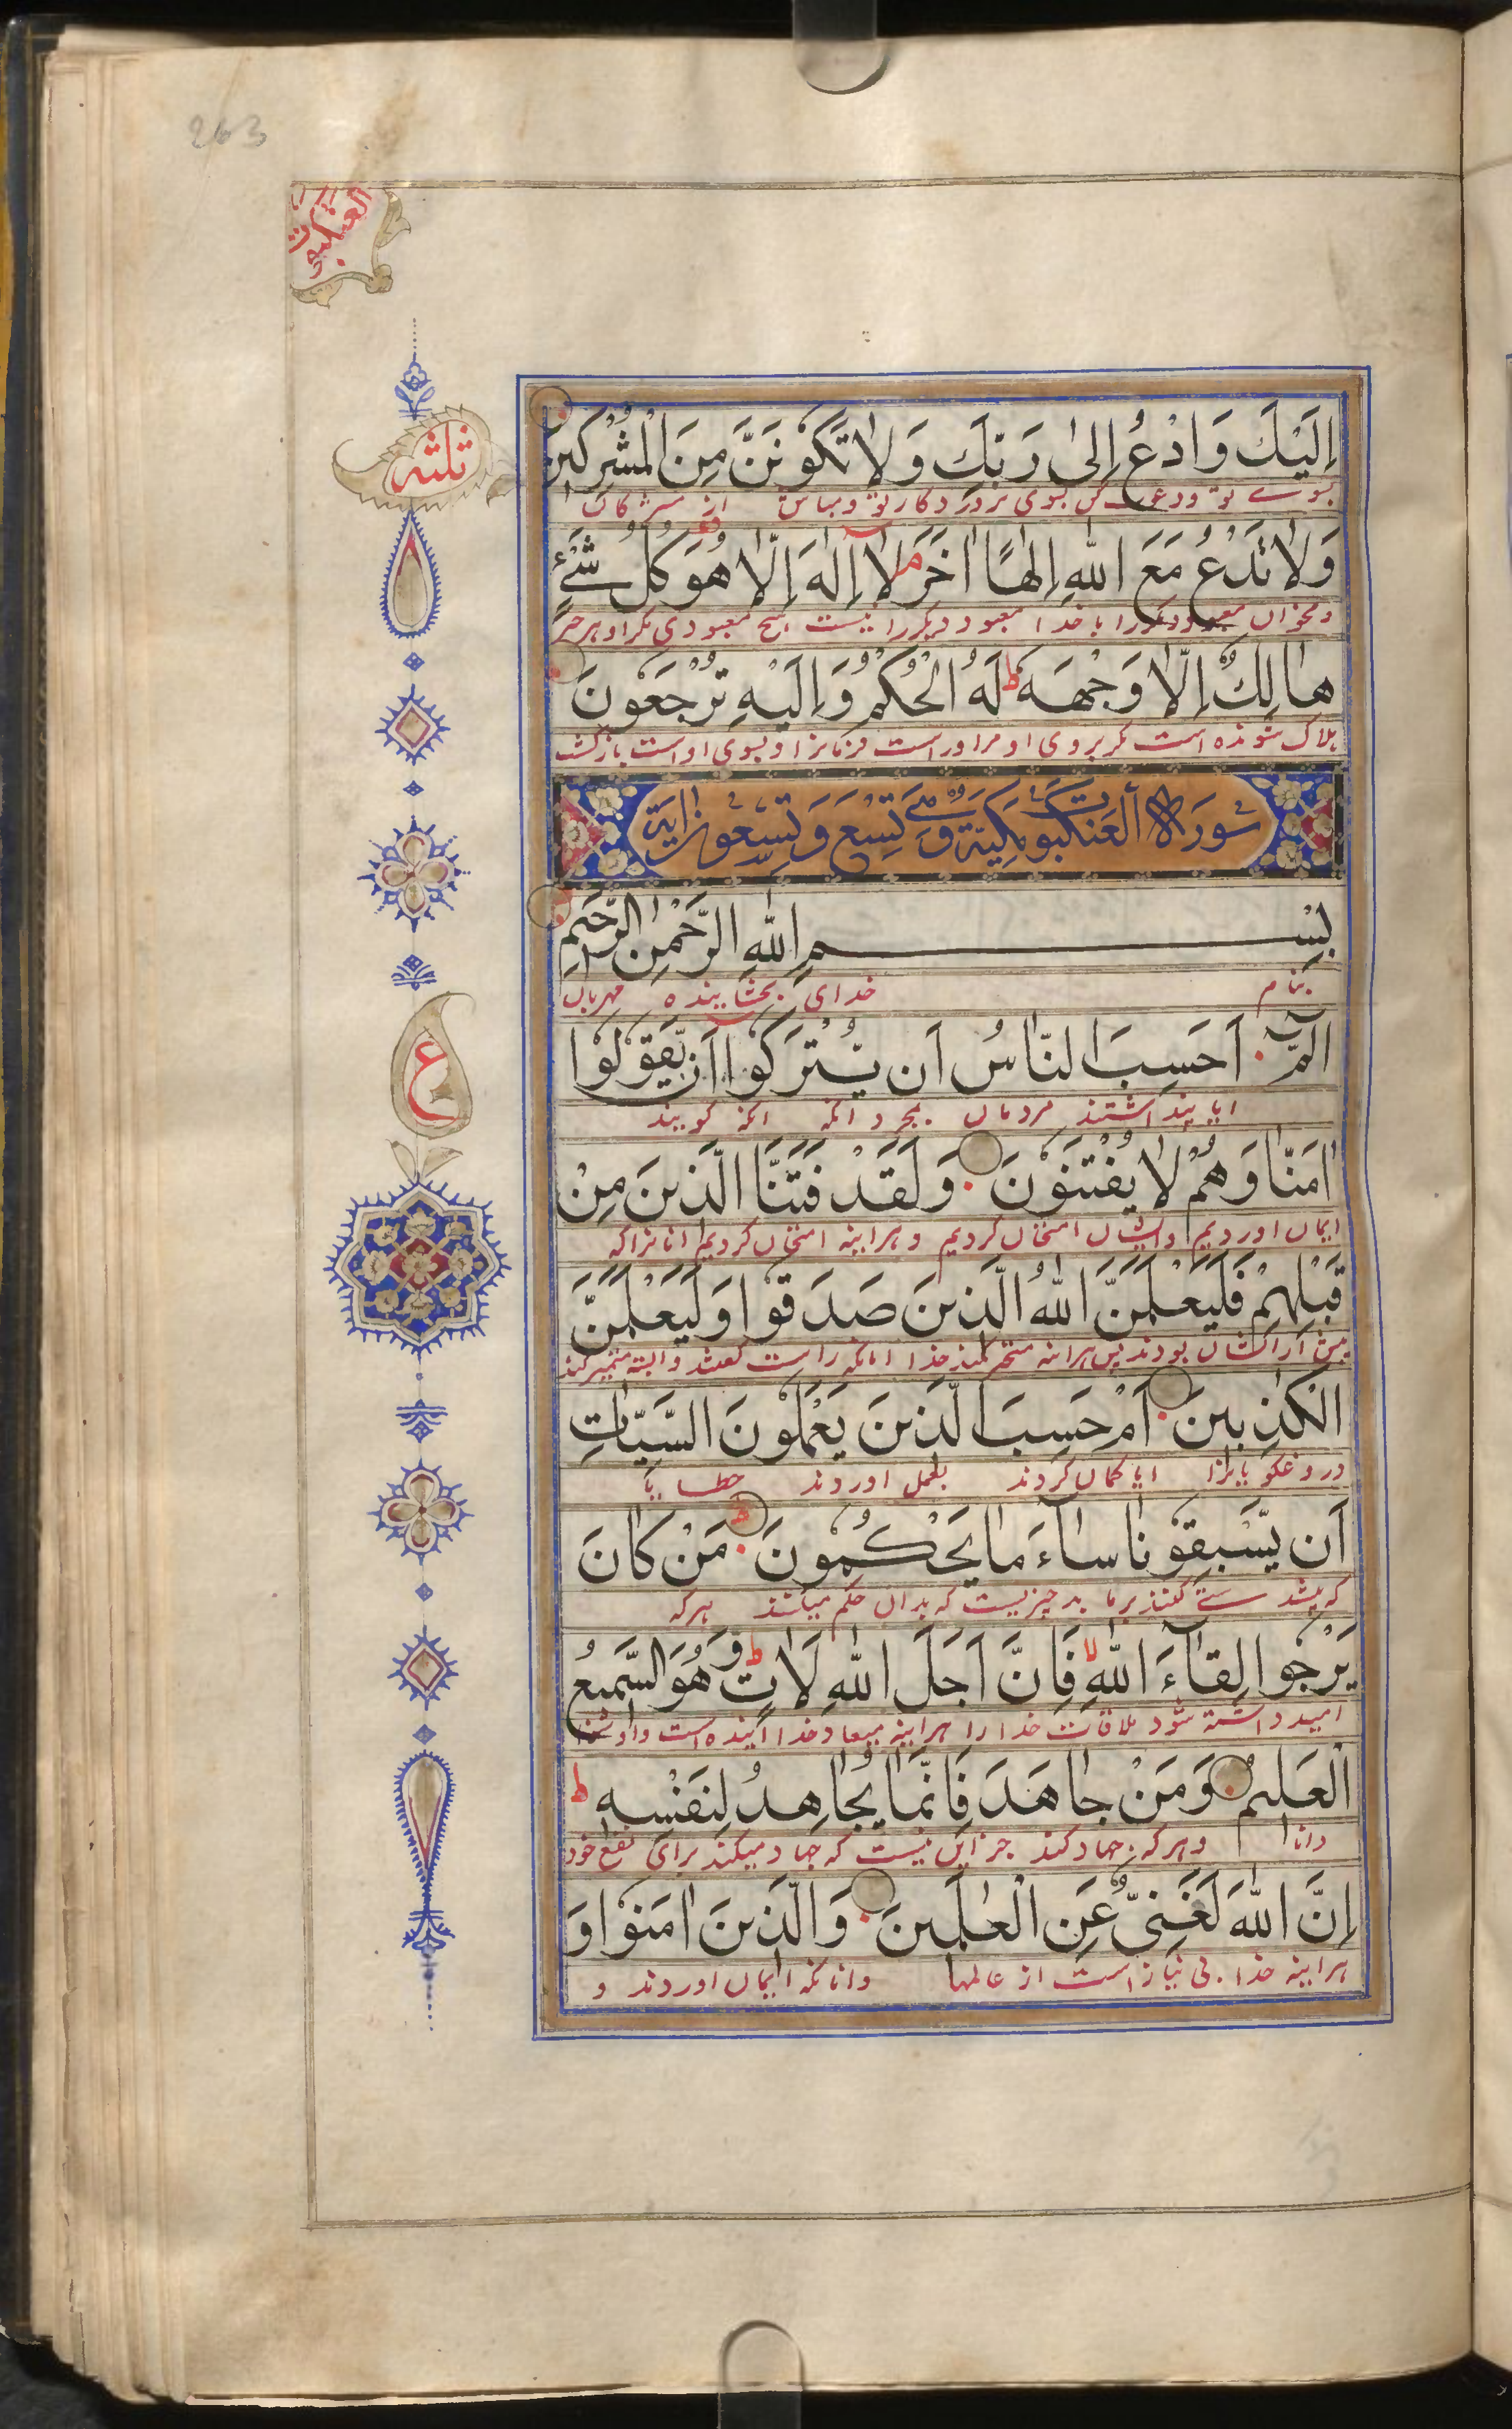 263
العنكبوت
ثلثه
اِلَيْكَ وَادْعُ اِلىٰ رَبِّكَ وَلَا تَكُونَنَّ مِنَ الْمُشْرِكينَ
بسوے تو ودعوت كن بسوى پروردكار تو ومباش از مشركان
وَلَا تَدْعُ مَعَ اللّٰهِ اِلٰهًا اٰخَرَ م لَا اِلٰهَ اِلَّا هُوَ كُلُّ شَيْءٍ
ومخوان با خدا معبود ديكررا نيست هيچ معبودى مكر او هر چيز
هَالِكٌ اِلَّا وَجْهَهٗ ط لَهُ الْحُكْمُ وَاِلَيْهِ تُرْجَعُونَ
هلاك شونده است مكر روى او مر اوراست فرمانروا وبسوى اوست بازكشت
سُورَةُ الْعَنْكَبُوت مَكِيَّة وَهِيَ تِسْعٌ وَتِسْعُونَ اٰيَة
بِسْمِ اللّٰهِ الرَّحْمٰنِ الرَّحيمِ
بنام خداى بخشاينده مهربان
الٓمّٓ اَحَسِبَ النَّاسُ اَنْ يُتْرَكُوا اَنْ يَقُولُوا
ايا پنداشتند مردمان بمجرد انكه انكه كويند
اٰمَنَّا وَهُمْ لَا يُفْتَنُونَ وَلَقَدْ فَتَنَّا الَّذينَ مِنْ
ايمان اورديم وايشان امتحان كرديم وهراينه امتحان كرديم انانراكه
قَبْلِهِمْ فَلَيَعْلَمَنَّ اللّٰهُ الَّذينَ صَدَقُوا وَلَيَعْلَمَنَّ
پيش از ايشان بودند پس هراينه متميز كند خدا انانكه راست كفتند والبته متميز كند
الْكٰذِبينَ اَمْ حَسِبَ الَّذينَ يَعْمَلُونَ السَّيِّاٰتِ
دروغكويانرا ايا كمان كردند بعمل اوردند خطايا
اَنْ يَسْبِقُونَا سَاءَ مَا يَحْكُمُونَ ط مَنْ كَانَ
كه پيشدستے كنند بر ما بد چيزيست كه بدان حكم ميكنند هركه
يَرْجُوا لِقَاءَ اللّٰهِ لا فَاِنَّ اَجَلَ اللّٰهِ لَاٰتٍ ط وَهُوَ السَّميعُ
اميد داشته شود ملاقات خدا را هراينه ميعاد خدا اينده است واو شنوا
الْعَليمُ وَمَنْ جَاهَدَ فَاِنَّمَا يُجَاهِدُ لِنَفْسِهٖ ط
دانا وهركه جهاد كند جز اين نيست كه جهاد ميكند براى نفع خود
اِنَّ اللّٰهَ لَغَنِيٌّ عَنِ الْعٰلَمينَ وَالَّذينَ اٰمَنُوا وَ
هراينه خدا بى نياز است از عالمها وانانكه ايمان اوردند و
ع